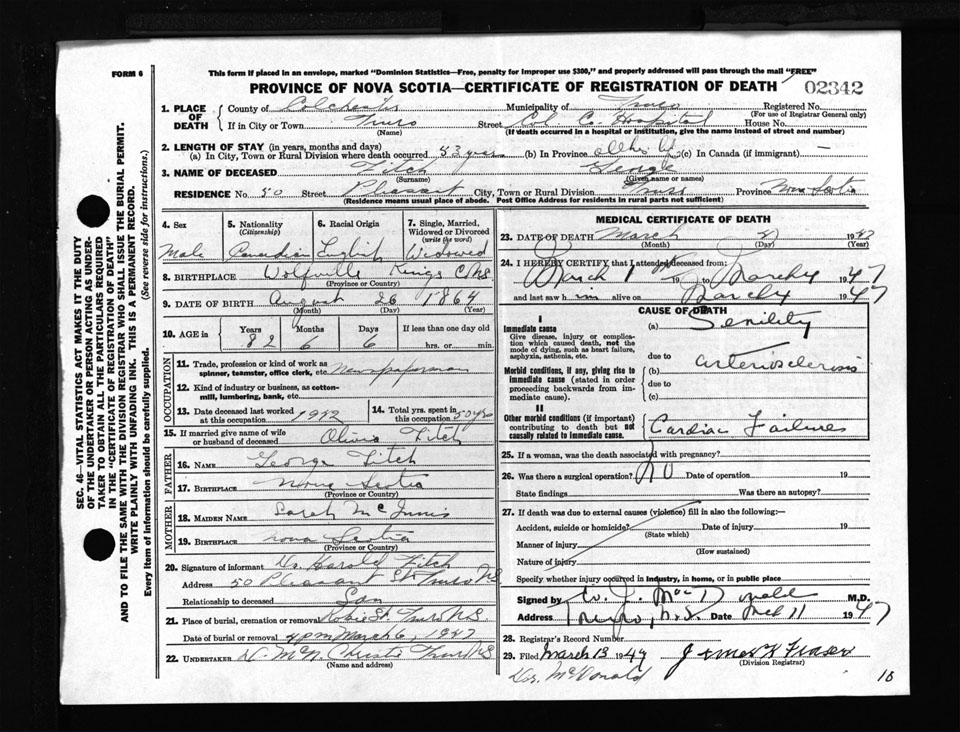 FORM 6
This form if placed in an envelope, marked "Dominion Statistics—Free, penalty for improper use $300," and properly addressed will pass through the mail "FREE"
PROVINCE OF NOVA SCOTIA—CERTIFICATE OF REGISTRATION OF DEATH 02342
SEC. 46—VITAL STATISTICS ACT MAKES IT THE DUTY
OF THE UNDERTAKER OR PERSON ACTING AS UNDER-
TAKER TO OBTAIN ALL THE PARTICULARS REQUIRED
IN THE "CERTIFICATE OF REGISTRATION OF DEATH"
AND TO FILE THE SAME WITH THE DIVISION REGISTRAR WHO SHALL ISSUE THE BURIAL PERMIT.
WRITE PLAINLY WITH UNFADING INK. THIS IS A PERMANENT RECORD.
Every item of Information should be carefully supplied. (See reverse side for instructions.)
1. PLACE OF DEATH
County of Colchester Municipality of Truro Registered No.
(For use of Registrar General only)
If in City or Town Truro Street Col. Co. Hospital House No.
(Name) (If death occurred in a hospital or institution, give the name instead of street and number)
2. LENGTH OF STAY (in years, months and days)
(a) In City, Town or Rural Division where death occurred 53 years (b) In Province All his life (c) In Canada (if immigrant) —
3. NAME OF DECEASED Fitch George
(Surname) (Given name or names)
RESIDENCE No. 50 Street Pleasant City, Town or Rural Division Truro Province Nova Scotia
(Residence means usual place of abode. Post Office Address for residents in rural parts not sufficient)
4. Sex 5. Nationality (Citizenship) 6. Racial Origin 7. Single, Married, Widowed or Divorced (write the word)
Male Canadian English Widowed
8. BIRTHPLACE Wolfville Kings Co NS
(Province or Country)
9. DATE OF BIRTH August 26 1864
(Month) (Day) (Year)
10. AGE in Years Months Days If less than one day old
82 6 6 hrs. or min.
OCCUPATION
11. Trade, profession or kind of work as spinner, teamster, office clerk, etc. Newspaperman
12. Kind of industry or business, as cotton-mill, lumbering, bank, etc.
13. Date deceased last worked at this occupation 1942 14. Total yrs. spent in this occupation 50 yrs
15. If married give name of wife or husband of deceased Olivia Fitch
FATHER
16. NAME George Fitch
17. BIRTHPLACE Nova Scotia
(Province or Country)
MOTHER
18. MAIDEN NAME Sarah McInnis
19. BIRTHPLACE Nova Scotia
(Province or Country)
20. Signature of informant Harold Fitch
Address 50 Pleasant St Truro N.S
Relationship to deceased Son
21. Place of burial, cremation or removal Robie St. Truro N.S.
Date of burial or removal 4 pm March 6, 1947
22. UNDERTAKER McN. Christie Truro NS
(Name and address)
MEDICAL CERTIFICATE OF DEATH
23. DATE OF DEATH March 1947
(Month) (Day) (Year)
24. I HEREBY CERTIFY that I attended deceased from:
March 1 19 to March 4 1947
and last saw him alive on March 4 1947
CAUSE OF DEATH
I
Immediate cause
Give disease, injury or complication which caused death, not the mode of dying, such as heart failure, asphyxia, asthenia, etc.
(a) Senility
due to
Morbid conditions, if any, giving rise to immediate cause (stated in order proceeding backwards from immediate cause).
(b) arteriosclerosis
due to
(c)
II
Other morbid conditions (if important) contributing to death but not causally related to immediate cause.
Cardiac Failure
25. If a woman, was the death associated with pregnancy?
26. Was there a surgical operation? No Date of operation 19
State findings Was there an autopsy?
27. If death was due to external causes (violence) fill in also the following:—
Accident, suicide or homicide? Date of injury 19
(State which)
Manner of injury
(How sustained)
Nature of injury
Specify whether injury occurred in industry, in home, or in public place
Signed by MacDonald M.D.
Address Truro, N.S. Date Mch 11 1947
28. Registrar's Record Number
29. Filed March 13 1947 James K Fraser
(Division Registrar)
McDonald